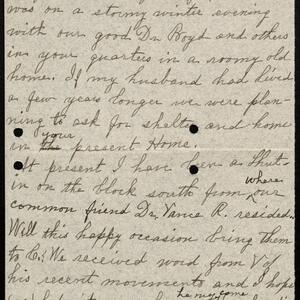 was on a stormy winter evening
with our good Dr. Boyd and others
in your quarters in a roomy old
home. If my husband had lived
a few years longer we were plan-
ning to ask for shelter and home
your
in present Home.
At present I have been a Shut-
where
in on the block south from our
common friend Dr. Vance R. resided.
Will this happy occasion bring them
to C.? We received word from of
his recent movements and I hope
he may come